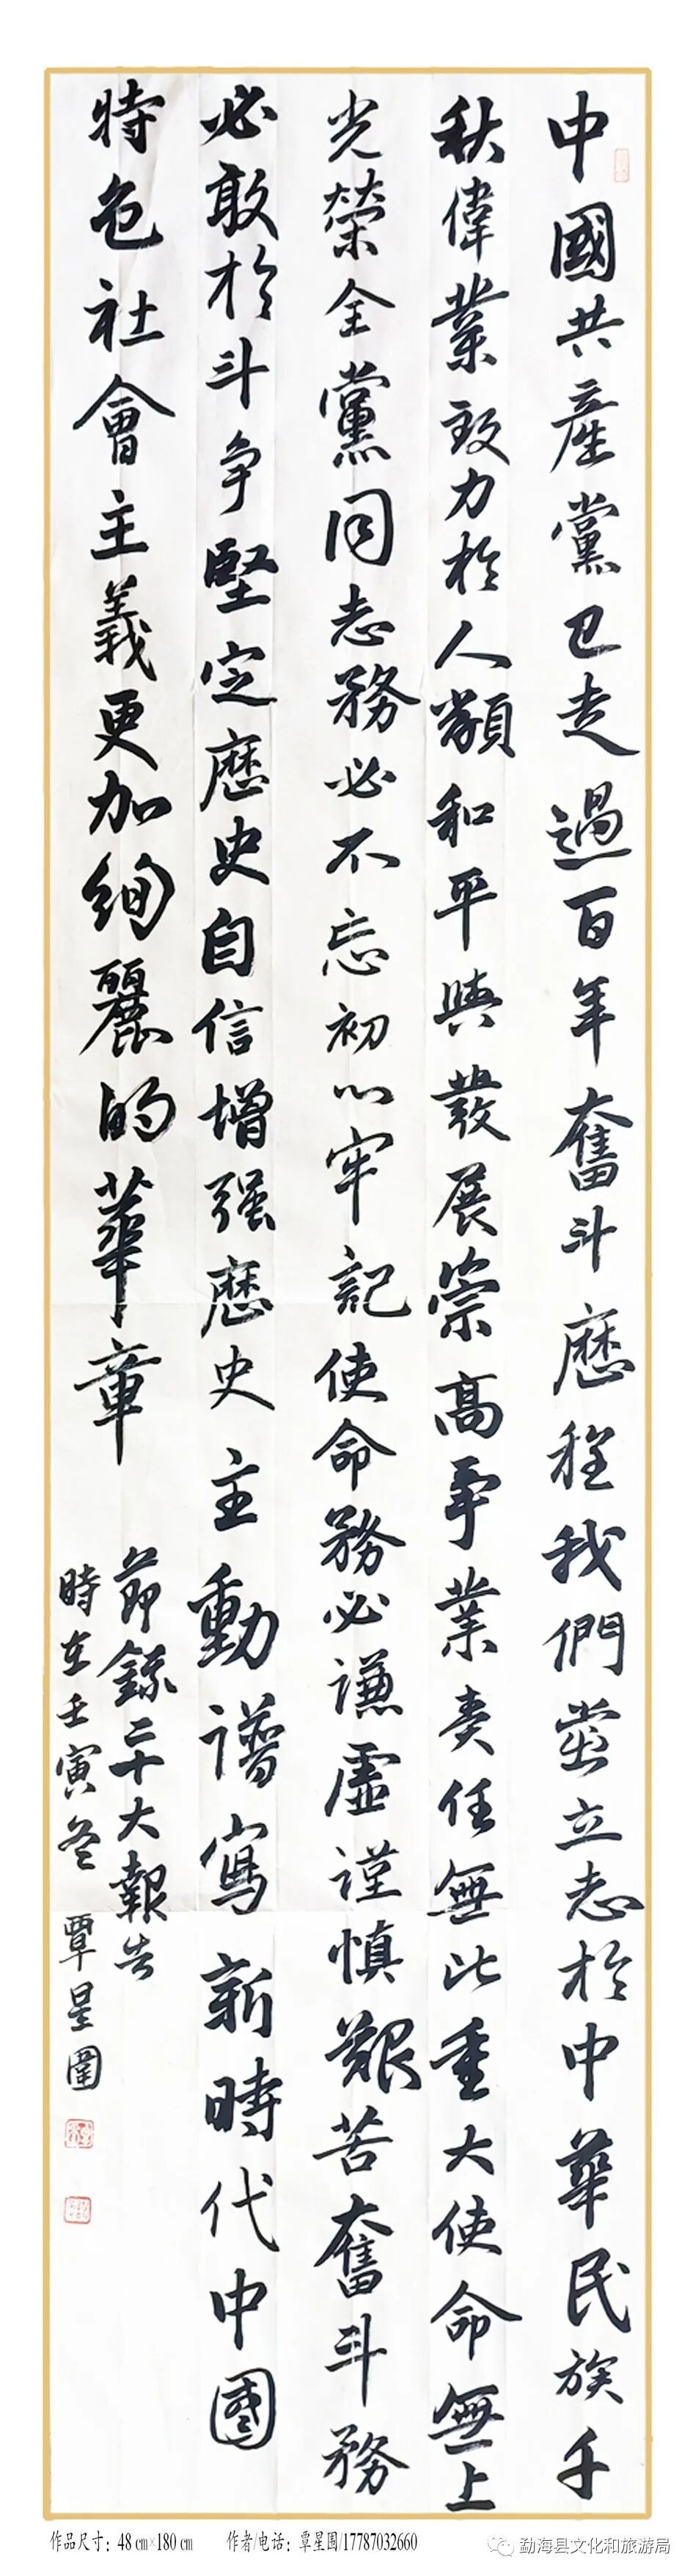 中國共產黨已走過百年奮斗歷程我們党立志於中華民族千
秋偉業致力於人類和平與發展崇高事業責任無比重大使命無上
光榮全黨同志務必不忘初心牢記使命務必謙虛謹慎艱苦奮斗務
必敢於斗争堅定歷史自信增强歷史主動譜寫新時代中國
特色社會主義更加絢麗的華章
節錄二十大報告
時在壬寅冬 覃星圍
作品尺寸：48㎝×180㎝ 作者/电话：覃星围/17787032660
勐海县文化和旅游局